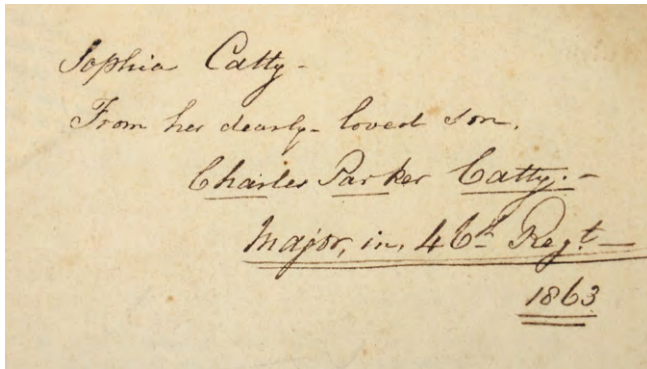 Sophia Catty -
From her dearly - loved son.
Charles Parker Catty. -
Major, in, 46th Regt. -
1863